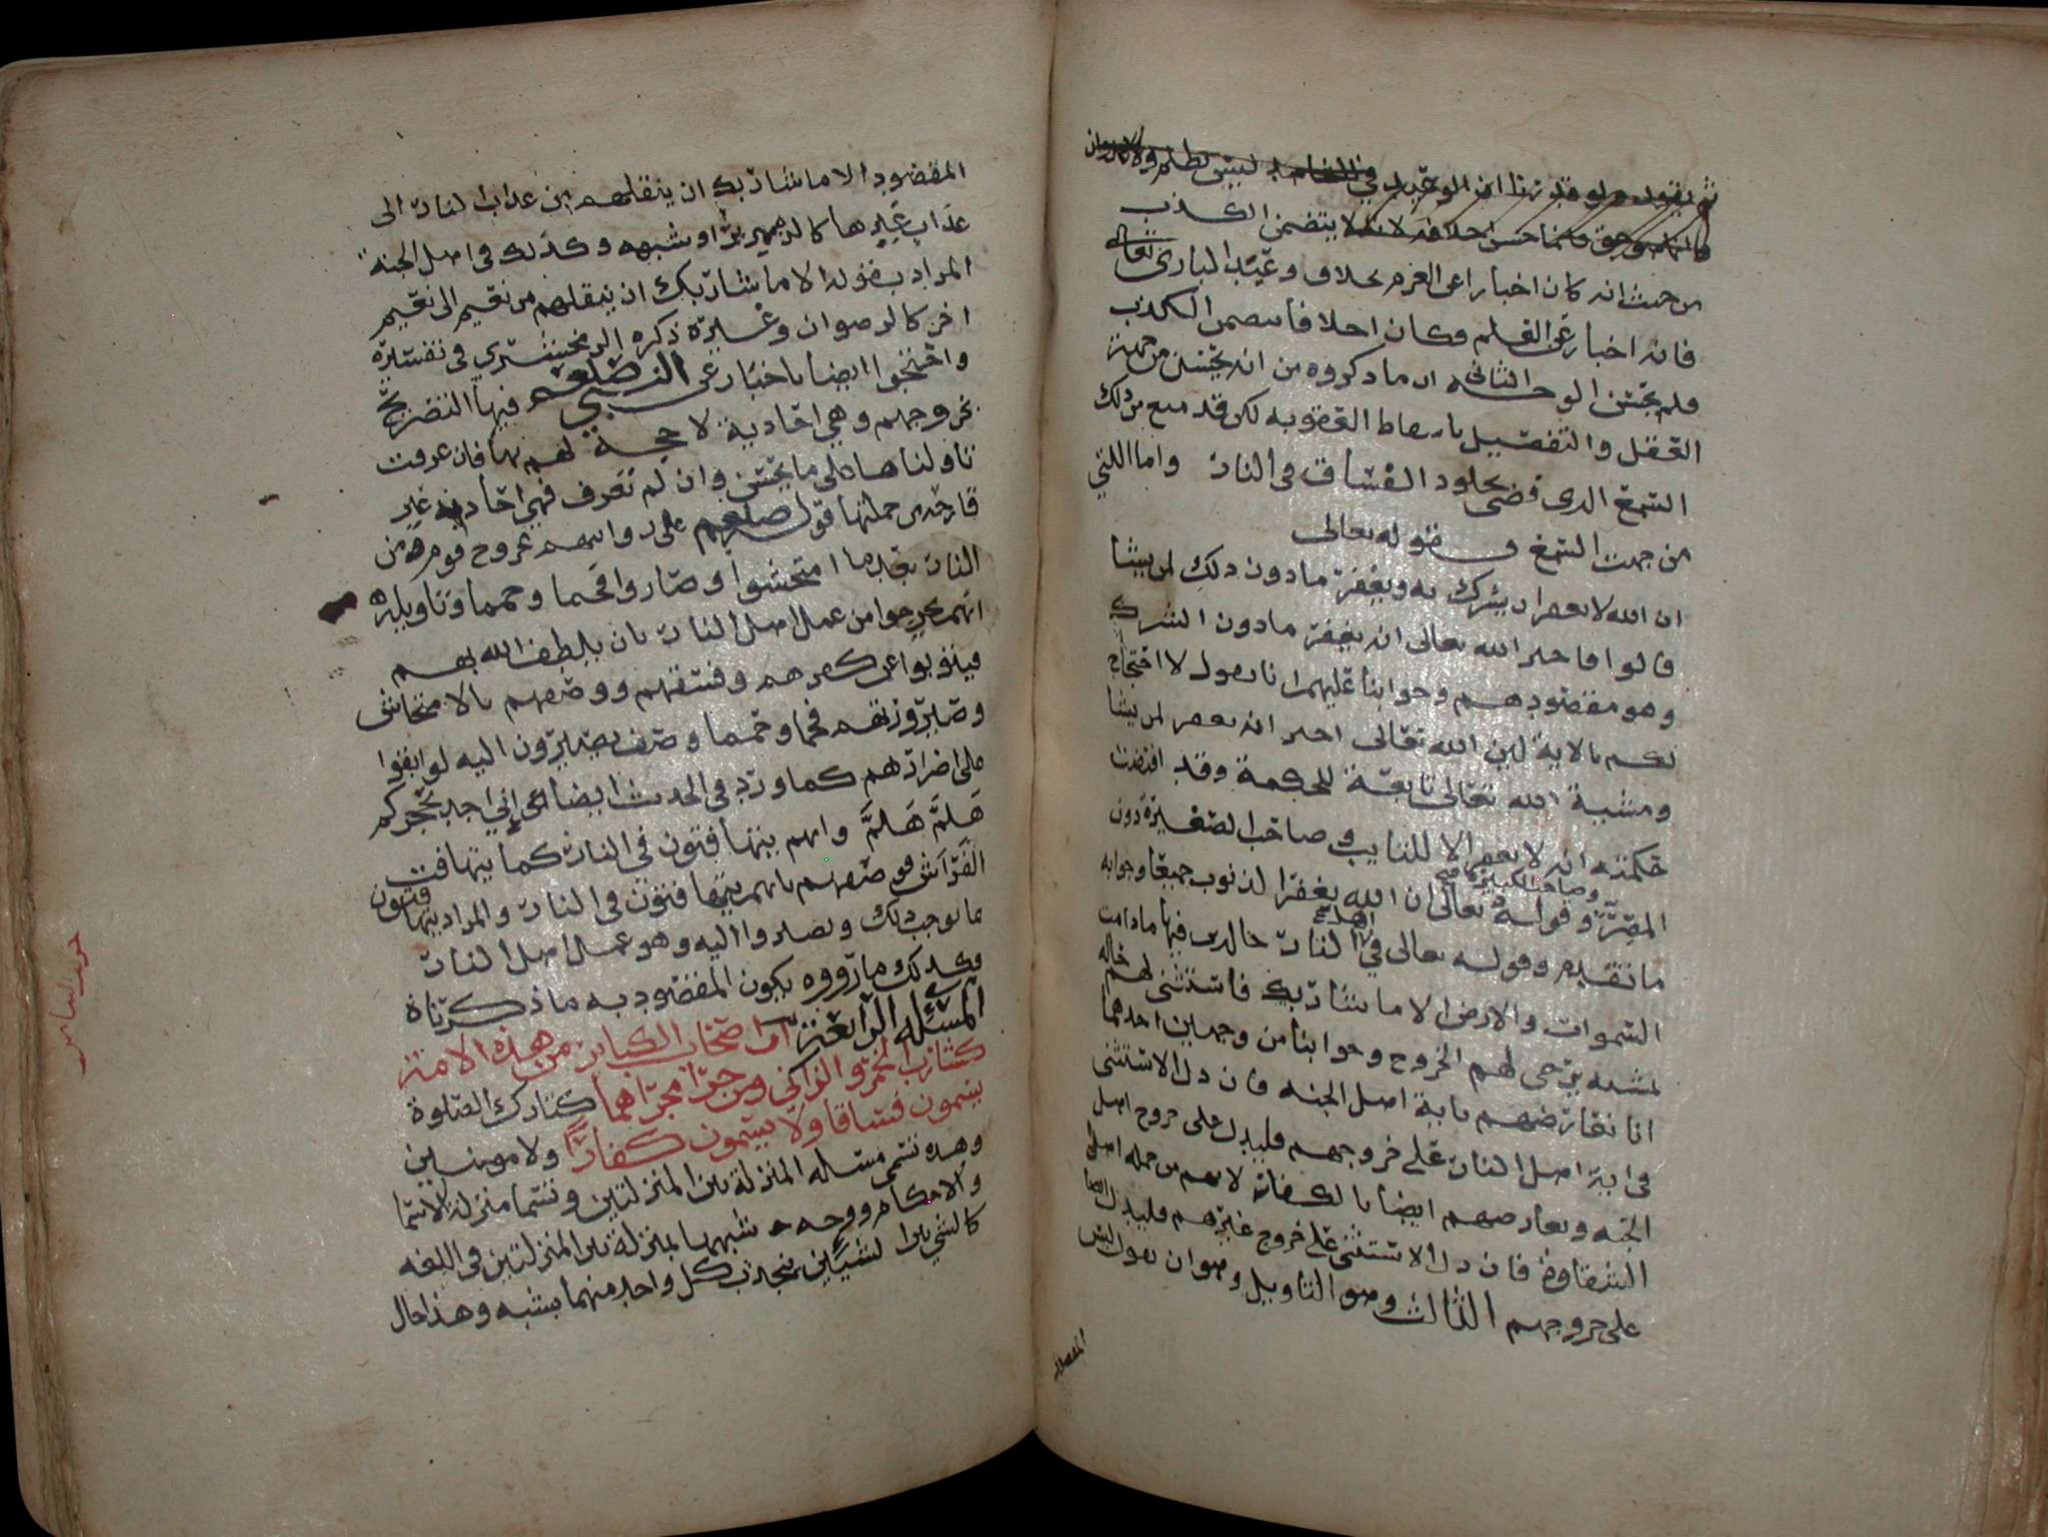 ثم يقول ولو قدرنا ان الوعيد في الشاهد ليس بظلم ولا
وانما حسن اخلافه لانه لا يتضمن الكذب
من حيث انه كان اخبارا عن العزم بخلاف وعيد الباري تعالى
فانه اخبار عن الفعلم فكان اخلافا يتضمن الكذب
فلم يحسن الوجه الثاني ان ما ذكروه من انه يحسن من جهة
العقل والتفضيل باسقاط العقوبه لكن قد منع من ذلك
السمع الذي قضى بخلود الفساق في النار واما اللتي
من جهت السمع فقوله تعالى
ان الله لا يغفر ان يشرك به ويغفر ما دون ذلك لمن يشا
قالوا فاخبر الله تعالى انه يغفر ما دون الشرك
وهو مقصودهم وجوابنا عليهم انا نقول لا احتجاج
لكم بالاية لين الله تعالى اخبر انه يغفر لمن يشا
ومشية الله تعالى تابعة للحكمة وقد اقتضت
حكمته انه لا يغفر الا للتايب وصاحب الصغيرة دون
وصاحب الكبيرة
المصر وقوله تعالى ان الله يغفر الذنوب جميعا وجوابه
ما تقدم وقوله تعالى في اهل النار خالدين فيها ما دامت
السموات والارض الا ما شا ربك فاستثنى لهم حاله
لمشيه يرجى لهم الخروج وجوابنا من وجهين احدهما
انا نعارضهم باية اهل الجنه فان دل الاستثنى
في اية اهل النار على خروجهم فليدل على خروج اهل
الجنه ونعارضهم ايضا بالكفار لانهم من جمله اهل
الشقاوة فان دل الاستثنى على خروج غيرهم فليدل ايضا
على خروجهم الثالث وهو التاويل وهو ان نقول ليس
المقصود
المقصود الا ما شا ربك ان ينقلهم من عذاب النار الى
عذاب غيرها كالزمهرير او شبهه وكذلك في اهل الجنة
المراد بقوله الا ما شا ربك ان ينقلهم من نعيم الى نعيم
اخر كالرضوان وغيره ذكره الزمخشري في تفسيره
واحتجوا ايضا باخبار عن النبي صلعم فيها التصريح
بخروجهم وهي احادية لا حجة لهم بها فان عرفت
تاولناها على ما يحسن وان لم تعرف فهي احاديه غير
قارحه من جملتها قول صلعم على روايهم بخروج قوم من
النار بعد ما امتحشوا وصاروا فحما وحمما وتاويله
انهم يخرجوا من عمل اهل النار بان يلطف الله بهم
فيتوبوا عن كفرهم وفسقهم ووصفهم بالامتحاش
وصيرورتهم فحما وحمما وصف يصيرون اليه لو بقوا
على اضرارهم كما ورد في الحديث ايضا عن اني اخذ بحجزكم
هلم هلم وانهم يتهافتون في النار كما يتهافت
الفراش فوصفهم بانهم يتهافتون في النار والمراد يتهافتون
ما يوجب ذلك ويصيروا اليه وهو عمل اهل النار
وكذلك ما رووه يكون المقصود به ما ذكرناه
المسئله الرابعة ان اصحاب الكباير من هذه الامة
كشارب الخمر والزاني ومن جرا مجراهما كتارك الصلوة
يسمون فساقا ولا يسمون كفارا ولا مومنين
وهذه تسمى مسئله المنزلة بين المنزلتين وتسما منزلة الاسما
والاحكام ووجه شبهها بمنزلة بين المنزلتين في اللغه
كالشي بين الشيين ينجذب كل واحد منهما بشبه وهذا حال